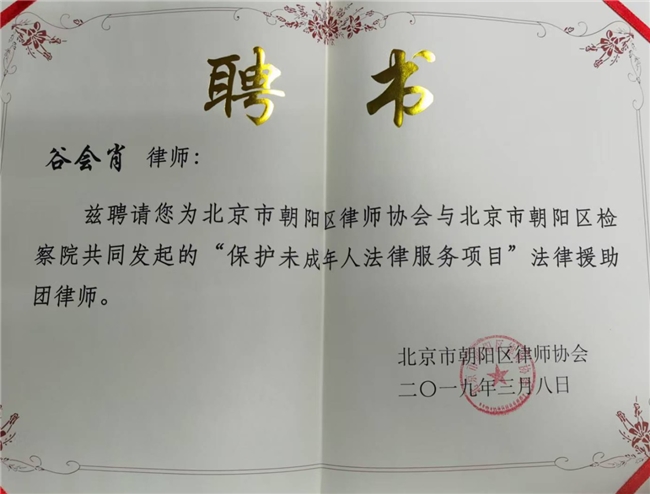 聘书
谷会肖 律师：
兹聘请您为北京市朝阳区律师协会与北京市朝阳区检
察院共同发起的“保护未成年人法律服务项目”法律援助
团律师。
北京市朝阳区律师协会
二〇一九年三月八日